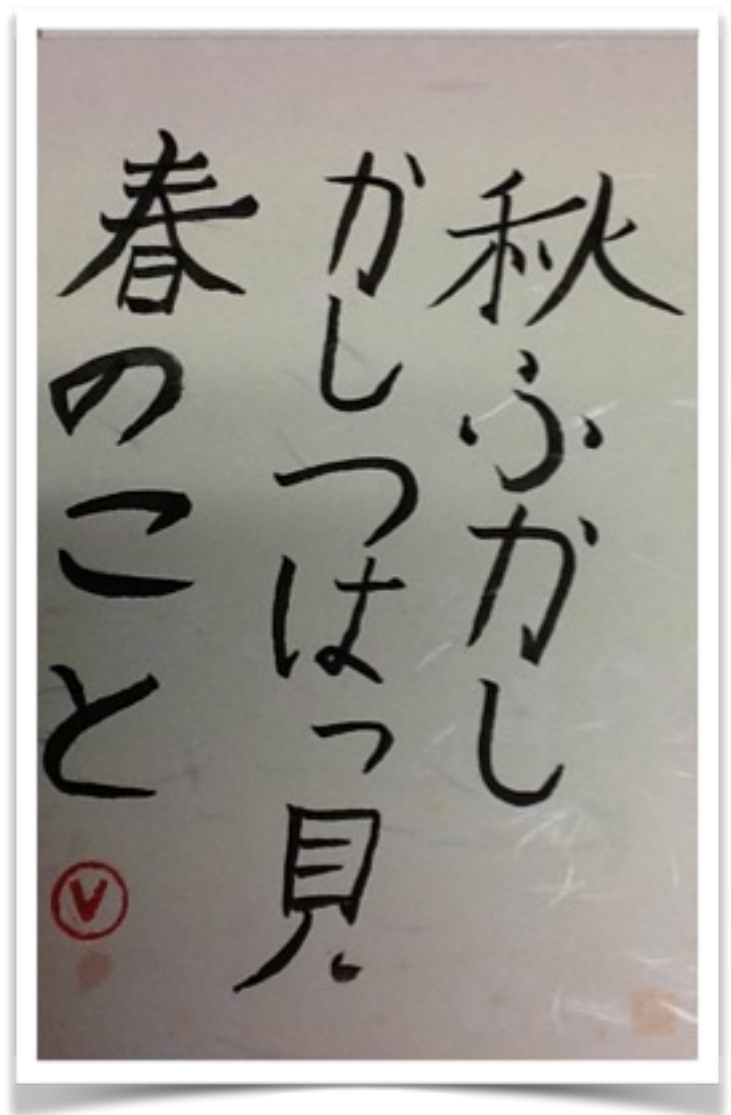 秋ふかし
かしつはっ見
春のこと
V